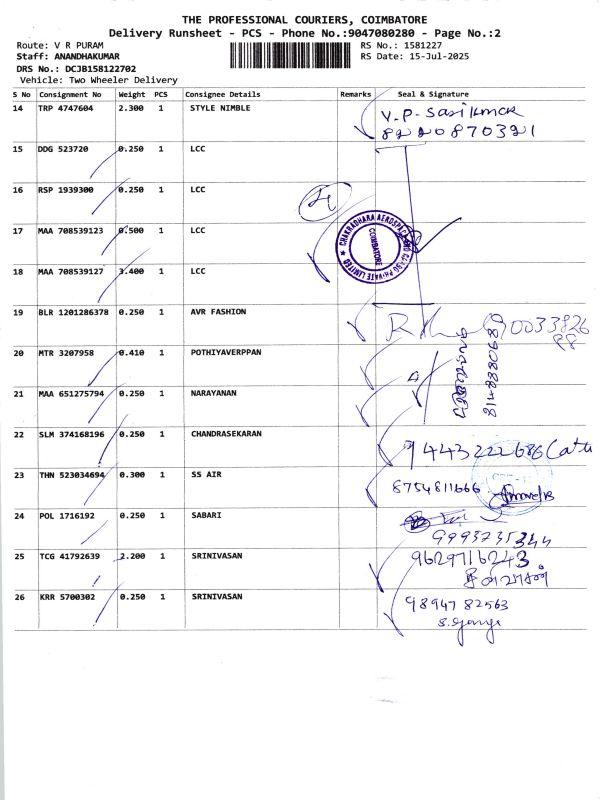 THE PROFESSIONAL COURIERS, COIMBATORE
Delivery Runsheet - PCS - Phone No.:9047080280 - Page No.:2
Route: V R PURAM
RS No.: 1581227
Staff: ANANDHAKUMAR
RS Date: 15-Jul-2025
DRS No.: DCJB158122702
Vehicle: Two Wheeler Delivery
S No Consignment No Weight PCS Consignee Details Remarks Seal & Signature
14 TRP 4747604 2.300 1 STYLE NIMBLE V.P-Sasikumar
8220870321
15 DDG 523720 0.250 1 LCC
16 RSP 1939300 0.250 1 LCC
17 MAA 708539123 0.500 1 LCC
CHAKRADHARA AEROSPACE
PRIVATE LIMITED
COIMBATORE
18 MAA 708539127 3.400 1 LCC
19 BLR 1201286378 0.250 1 AVR FASHION
20 MTR 3207958 0.410 1 POTHIYAVERPPAN
4
8148880689
21 MAA 651275794 0.250 1 NARAYANAN
22 SLM 374168196 0.250 1 CHANDRASEKARAN 9443222686
23 THN 523034694 0.300 1 SS AIR 8754811666
24 POL 1716192 0.250 1 SABARI
9993735344
25 TCG 41792639 2.200 1 SRINIVASAN 9629716243
26 KRR 5700302 0.250 1 SRINIVASAN 9894782563